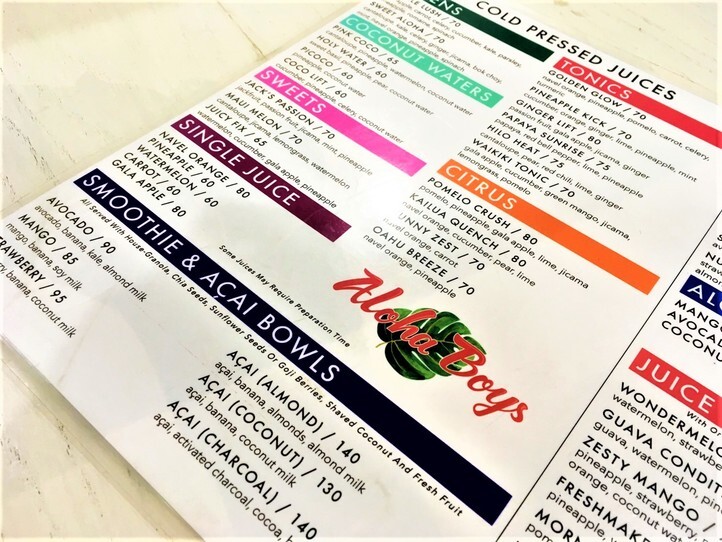 COLD PRESSED JUICES
LUSH / 70
SWEET ALOHA / 70
COCONUT WATERS
PINK COCO / 65
cantaloupe, pineapple, watermelon, coconut water
HOLY WATER / 60
PICOCO / 60
COCO LIFT / 60
cucumber, pineapple, celery, coconut water
SWEETS
JACK'S PASSION / 70
jackfruit, passion fruit, jicama, mint, pineapple
MAUI MELON / 70
cantaloupe, jicama, lemongrass, watermelon
JUICY FIX / 65
watermelon, cucumber, gala apple, pineapple
SINGLE JUICE
NAVEL ORANGE / 80
PINEAPPLE / 60
WATERMELON / 60
CARROT / 60
GALA APPLE / 80
TONICS
GOLDEN GLOW / 70
navel orange, pineapple, pomelo, carrot, celery,
turmeric
PINEAPPLE KICK / 70
cucumber, orange, ginger, lime, pineapple, mint
GINGER LIFT / 80
passion fruit, gala apple, jicama, ginger
PAPAYA SUNRISE / 75
papaya, red bell pepper, lime, pineapple
HILO HEAT / 75
cantaloupe, pear, red chili, lime, ginger
WAIKIKI TONIC / 70
gala apple, cucumber, green mango, jicama,
lemongrass, pomelo
CITRUS
POMELO CRUSH / 80
pomelo, pineapple, gala apple, lime, jicama
KAILUA QUENCH / 80
navel orange, cucumber, pear, lime
UNNY ZEST / 70
navel orange, carrot
OAHU BREEZE / 70
navel orange, pineapple
Some Juices May Require Preparation Time
Aloha Boys
SMOOTHIE & AÇAI BOWLS
All Served With House-Granola, Chia Seeds, Sunflower Seeds Or Goji Berries, Shaved Coconut And Fresh Fruit
AVOCADO / 90
avocado, banana, kale, almond milk
MANGO / 85
mango, banana, soy milk
RAWBERRY / 95
banana, coconut milk
AÇAI (ALMOND) / 140
açai, banana, almonds, almond milk
AÇAI (COCONUT) / 130
açai, banana, coconut milk
AÇAI (CHARCOAL) / 140
açai, activated charcoal, cocoa,
MANGO
AVOCAD
COCONU
JUICE
WONDERMELO
watermelon, strawb
GUAVA CONDIT
guava, watermelon, pin
ZESTY MANGO /
pineapple, strawberry,
orange, coconut wat
FRESHMAKE
pineapple, w
MORN